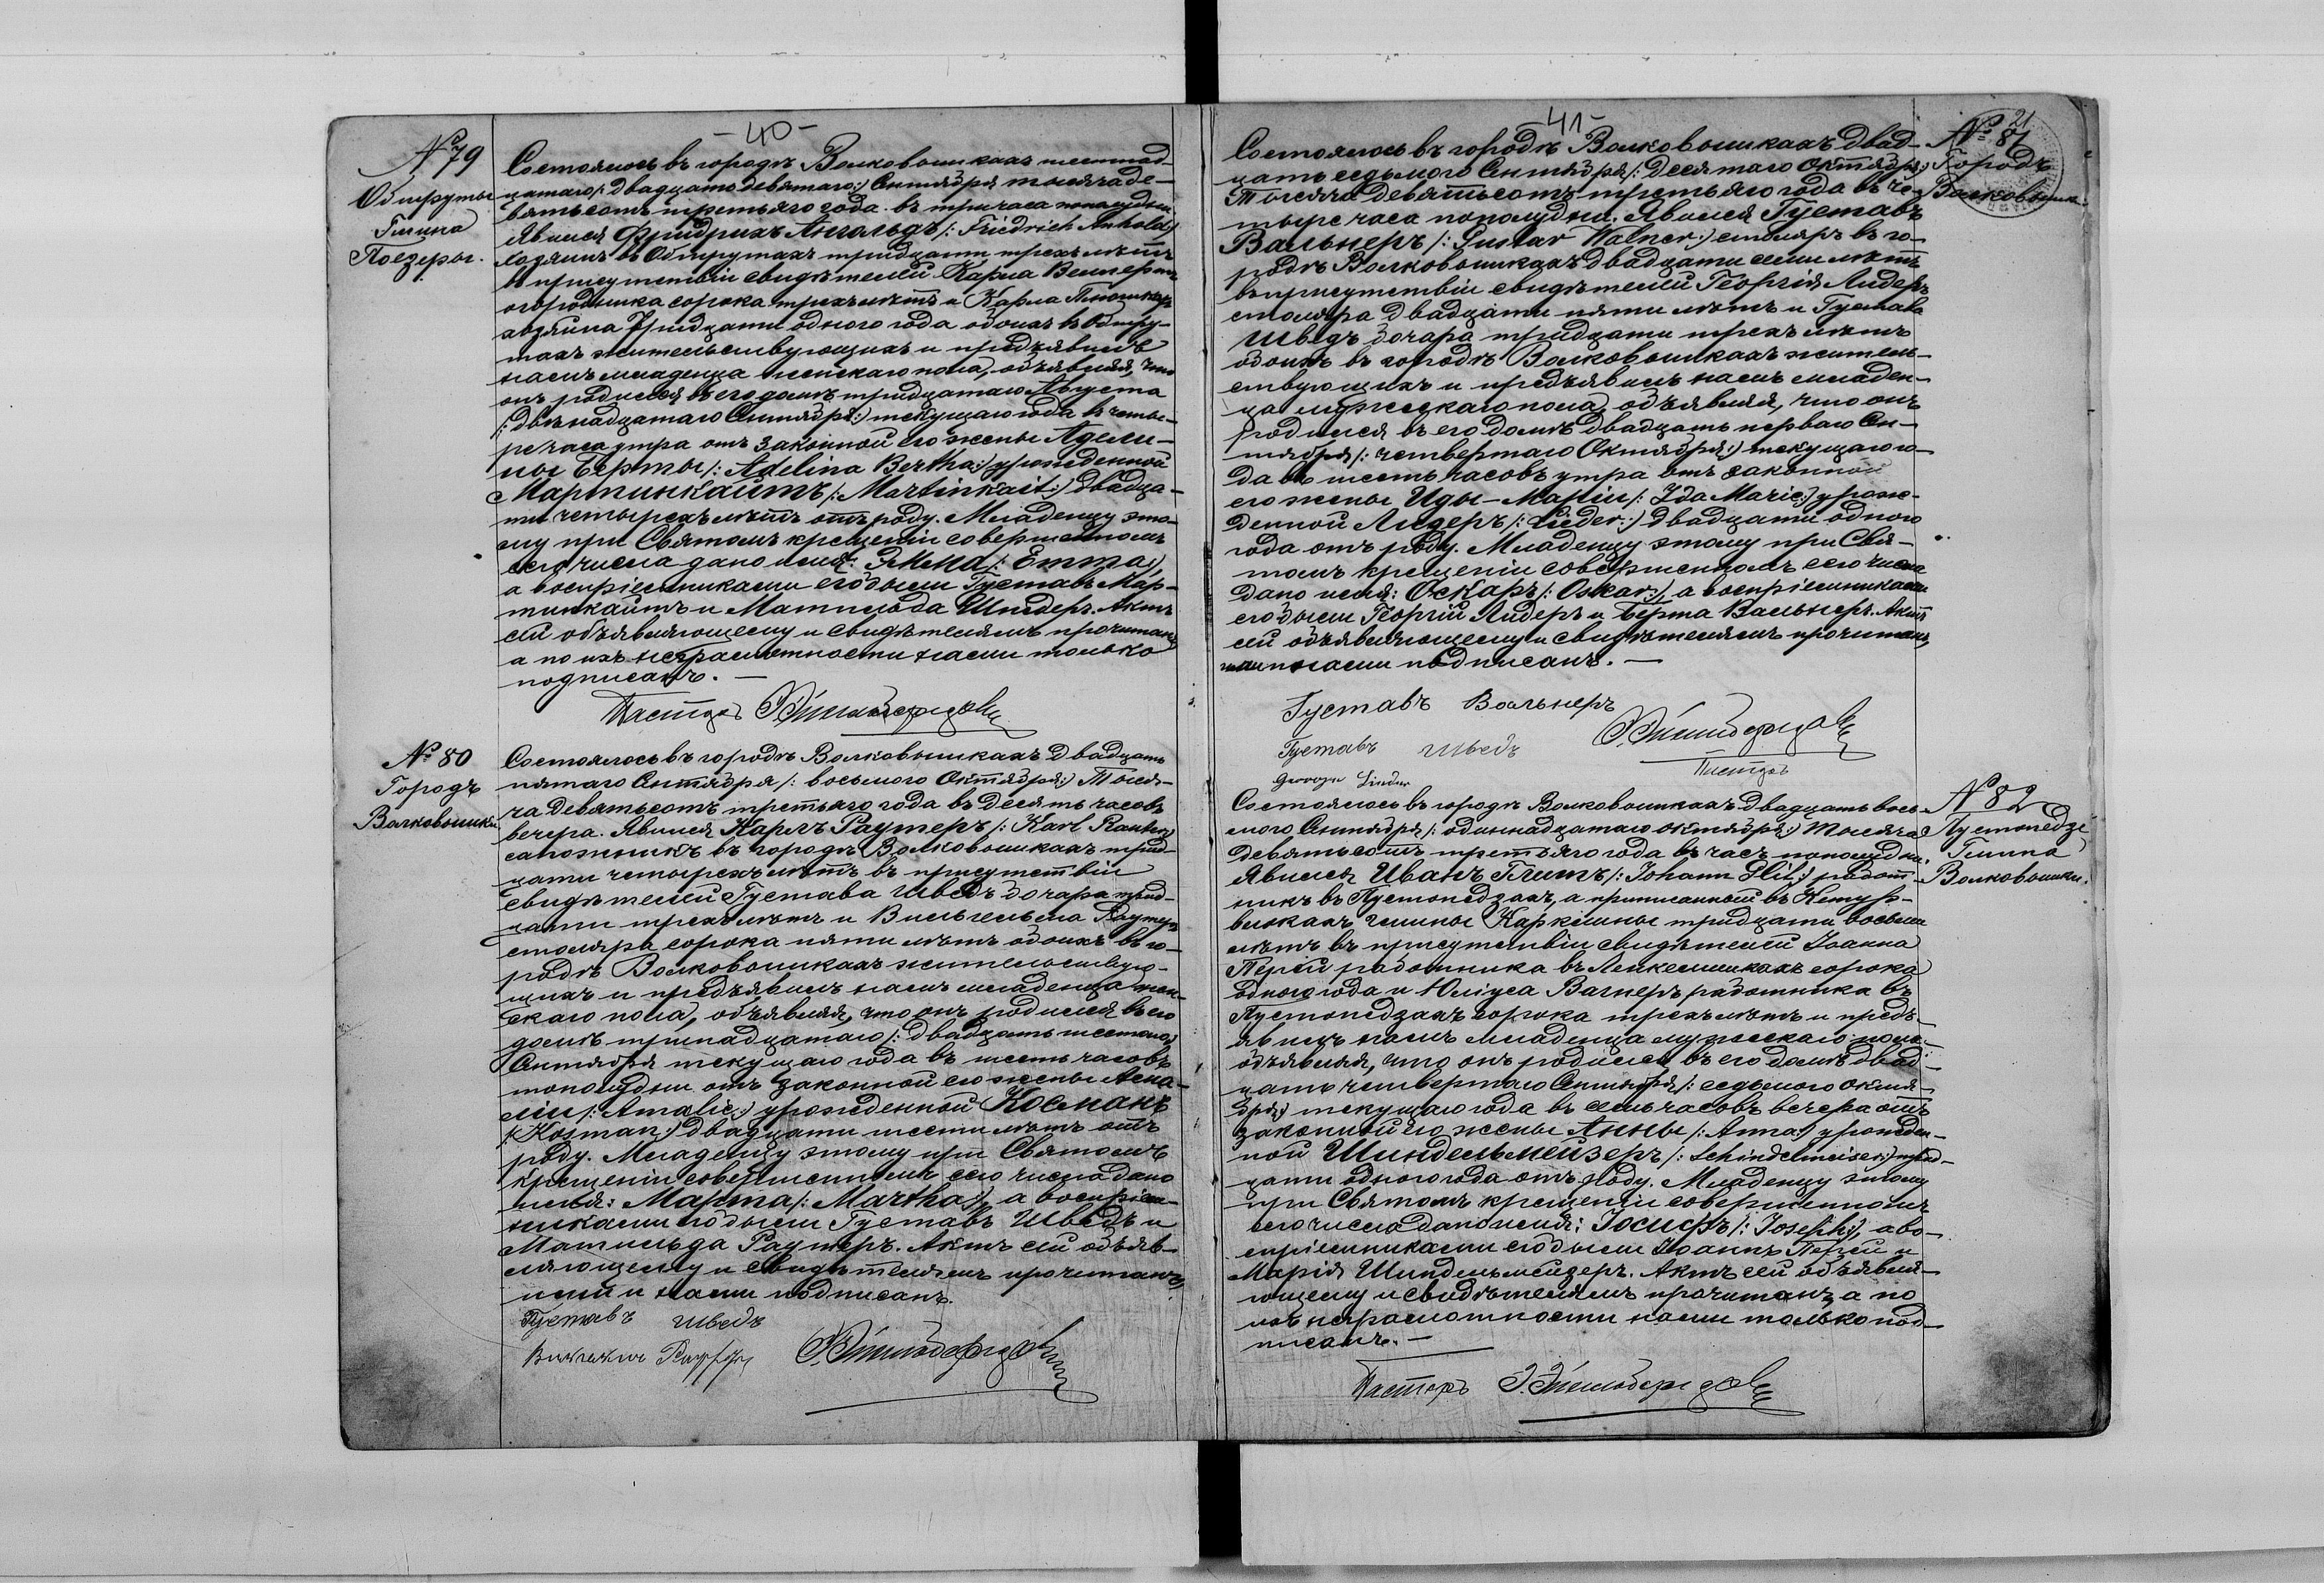 -40-
№ 79
Обшруты
Гмина
Поезеры.
Состоялось въ городѣ Волковышкахъ шестнад-
цатаго /: двадцать девятаго :/ Сентября тысяча де-
вятьсотъ третьяго года въ три часа пополудни.
Явился Фридрихъ Ангольдъ /: Friedrich Anhold :/
хозяинъ въ Обшрутахъ тридцати трехъ лѣтъ
въ присутствіи свидѣтелей Карла
огородника сорока трехъ лѣтъ и Карла
хозяина тридцати одного года обоихъ въ Обшру-
тахъ жительствующихъ и предъявилъ
намъ младенца женскаго пола, объявляя, что
онъ родился въ его домѣ тридцатаго Августа
/: двѣнадцатаго Сентября :/ текущаго года въ четы-
ре часа утра отъ законной его жены Адели-
ны Берты /: Adelina Bertha :/ урожденной
Мартинкайтъ /: Martinkait :/ двадца-
ти четырехъ лѣтъ отъ роду. Младенцу это-
му при Святомъ крещеніи совершенномъ
сего числа дано имя: Эмма /: Emma :/,
а воспріемниками его были Густавъ Мар-
тинкайтъ и Матильда Шнидеръ. Актъ
сей объявляющему и свидѣтелямъ прочитанъ,
а по ихъ неграмотности нами только
подписанъ. —
Пасторъ
№ 80
Городъ
Волковышки
Состоялось въ городѣ Волковышкахъ двадцать
пятаго Сентября /: восьмого Октября :/ Тыся-
ча девятьсотъ третьяго года въ десять часовъ
вечера. Явился Карлъ Раутеръ /: Karl Rauter :/
сапожникъ въ городѣ Волковышкахъ трид-
цати четырехъ лѣтъ въ присутствіи
свидѣтелей Густава Шведъ бочара трид-
цати трехъ лѣтъ и Вильгельма Раутеръ
столяра сорока пяти лѣтъ обоихъ въ го-
родѣ Волковышкахъ жительствую-
щихъ и предъявилъ намъ младенца жен-
скаго пола, объявляя, что онъ родился въ его
домѣ тринадцатаго /: двадцать шестого :/
Сентября текущаго года въ шесть часовъ
пополудни отъ законной его жены Ама-
ліи /: Amalie :/ урожденной Косманъ
/: Kosman :/ двадцати шести лѣтъ отъ
роду. Младенцу этому при Святомъ
крещеніи совершенномъ сего числа дано
имя: Марта /: Martha :/, а воспріем-
никами его были Густавъ Шведъ и
Матильда Раутеръ. Актъ сей объяв-
ляющему и свидѣтелямъ прочитанъ,
ими и нами подписанъ.
Густавъ Шведъ
-41-
21
№ 81
Городъ
Волковышки
Состоялось въ городѣ Волковышкахъ двад-
цать седьмого Сентября /: Десятаго Октября :/
Тысяча девятьсотъ третьяго года въ че-
тыре часа пополудни. Явился Густавъ
Вальнеръ /: Gustav Walner :/ столяръ въ го-
родѣ Волковышкахъ двадцати семи лѣтъ
въ присутствіи свидѣтелей Георгія Лидеръ
столяра двадцати пяти лѣтъ и Густава
Шведъ бочара тридцати трехъ лѣтъ
обоихъ въ городѣ Волковышкахъ житель-
ствующихъ и предъявилъ намъ младен-
ца мужескаго пола, объявляя, что онъ
родился въ его домѣ двадцать перваго Сен-
тября /: четвертаго Октября :/ текущаго го-
да въ шесть часовъ утра отъ законной
его жены Иды-Маріи /: Ida Marie :/ урож-
денной Лидеръ /: Lieder :/ двадцати одного
года отъ роду. Младенцу этому при Свя-
томъ крещеніи совершенномъ сего числа
дано имя: Оскаръ /: Oskar :/, а воспріемниками
его были Георгій Лидеръ и Берта Вальнеръ. Актъ
сей объявляющему и свидѣтелямъ прочитанъ,
ими и нами подписанъ. —
Густавъ Вальнеръ
Густавъ Шведъ
Пасторъ
№ 82
Пустопедзе
Гмина
Волковышки.
Состоялось въ городѣ Волковышкахъ двадцать вось-
мого Сентября /: одиннадцатаго Октября :/ тысяча
девятьсотъ третьяго года въ часъ пополудни.
Явился Иванъ Глинъ /: Johann :/ работ-
никъ въ Пустопедзахъ, а приписанный въ
гмины Каркляны тридцати восьми
лѣтъ въ присутствіи свидѣтелей Іоанна
Перей работника въ сорока
одного года и Юліуса Вагнеръ работника въ
Пустопедзахъ сорока трехъ лѣтъ и предъ-
явилъ намъ младенца мужескаго пола
объявляя, что онъ родился въ его домѣ двад-
цать четвертаго Сентября /: седьмого Октя-
бря :/ текущаго года въ семь часовъ вечера отъ
законной его жены Анны /: Anna :/ урожден-
ной Шиндельмейзеръ /: Schindelmeiser :/ трид-
цати одного года отъ роду. Младенцу этому
при Святомъ крещеніи совершенномъ
сего числа дано имя: Іосифъ /: Joseph :/, а во-
спріемниками его были Іоаннъ Перей и
Марія Шиндельмейзеръ. Актъ сей объявля-
ющему и свидѣтелямъ прочитанъ, а по
ихъ неграмотности нами только под-
писанъ. —
Пасторъ